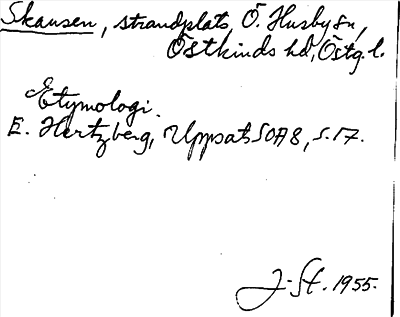 Skansen, strandplats, Ö. Husby sn,
Östkinds hd, Östg. l.
Etymologi.
E. Hertzberg, Uppsats SOA 8, s. 17.
J-St. 1955.